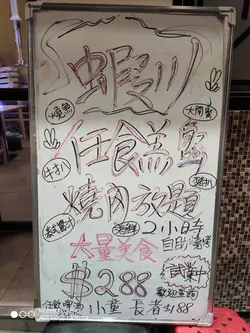 蝦川
燒魚
大閘蟹
任食羔蟹
牛扒
豬扒
燒肉放題
海鮮
2小時
自助燒烤
大量美食
$288
試業中
歡迎查詢
任飲啤酒
小童 長者$188